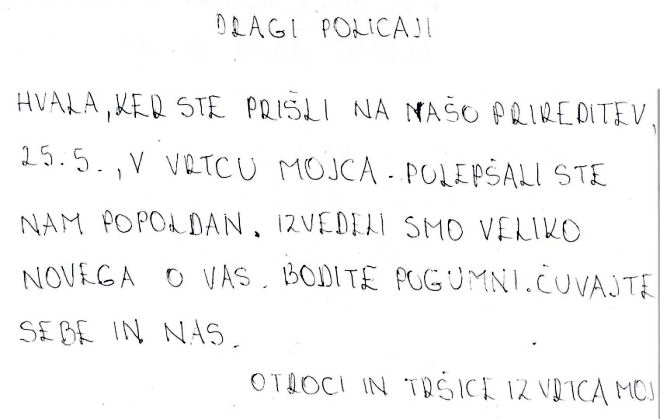 DRAGI POLICAJI
HVALA, KER STE PRIŠLI NA NAŠO PRIREDITEV,
25.5., V VRTCU MOJCA. POLEPŠALI STE
NAM POPOLDAN. IZVEDELI SMO VELIKO
NOVEGA O VAS. BODITE POGUMNI. ČUVAJTE
SEBE IN NAS.
OTROCI IN TRŠICE IZ VRTCA MOJ